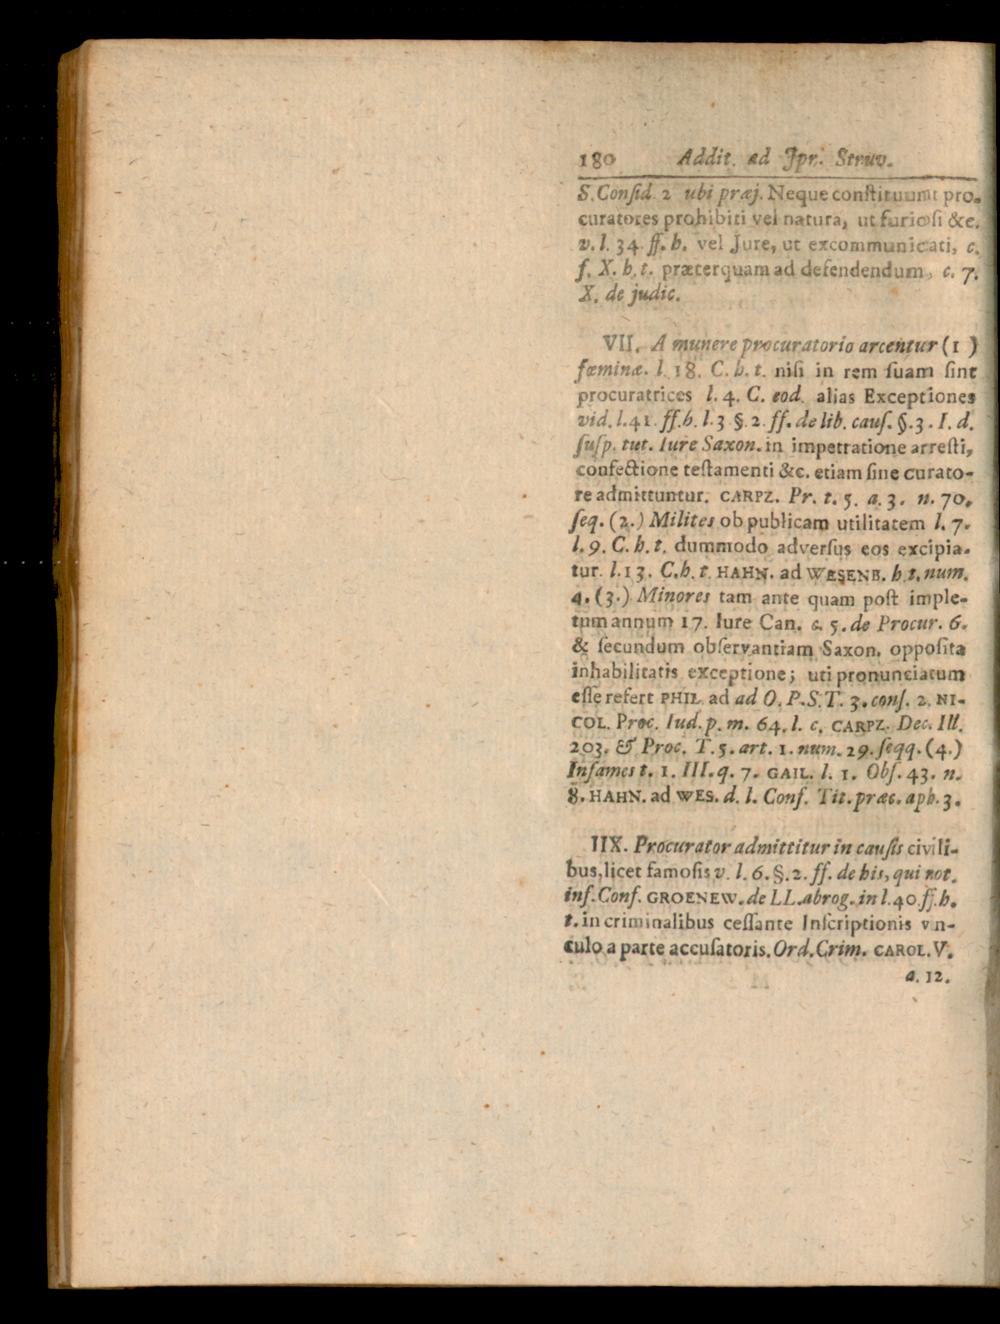 180 Addit. ad Jpr. Struv.
S. Conſid. 2 ubi præj. Neque conſtituunt pro-
curatores prohibiti vel natura, ut furioſi &c.
v. l. 34. ff. h. vel Jure, ut excommunicati, c.
f. X. h. t. præterquam ad defendendum, c. 7.
X. de judic.
VII. A munere procuratorio arcentur (1)
fœminæ. l. 18. C. h. t. niſi in rem ſuam ſint
procuratrices l. 4. C. eod. alias Exceptiones
vid. l. 41. ff. h. l. 3 §. 2. ff. de lib. cauſ. §. 3. I. d.
ſuſp. tut. Iure Saxon. in impetratione arreſti,
confectione teſtamenti &c. etiam ſine curato-
re admittuntur. CARPZ. Pr. t. 5. a. 3. n. 70.
ſeq. (2.) Milites ob publicam utilitatem l. 7.
l. 9. C. h. t. dummodo adverſus eos excipia-
tur. l. 13. C. h. t. HAHN. ad WESENB. h. t. num.
4. (3.) Minores tam ante quam poſt imple-
tum annum 17. Iure Can. c. 5. de Procur. 6.
& ſecundum obſervantiam Saxon. oppoſita
inhabilitatis exceptione; uti pronunciatum
eſſe refert PHIL. ad ad O. P. S. T. 3. conſ. 2. NI-
COL. Proc. Iud. p. m. 64. l. c. CARPZ. Dec. III.
203. & Proc. T. 5. art. 1. num. 29. ſeqq. (4.)
Infames t. 1. III. q. 7. GAIL. l. 1. Obſ. 43. n.
8. HAHN. ad WES. d. l. Conf. Tit. præc. aph. 3.
IIX. Procurator admittitur in cauſis civili-
bus, licet famoſis v. l. 6. §. 2. ff. de his, qui not.
inf. Conf. GROENEW. de LL. abrog. in l. 40 ff. h.
t. in criminalibus ceſſante Inſcriptionis vin-
culo a parte accuſatoris. Ord. Crim. CAROL. V.
a. 12.